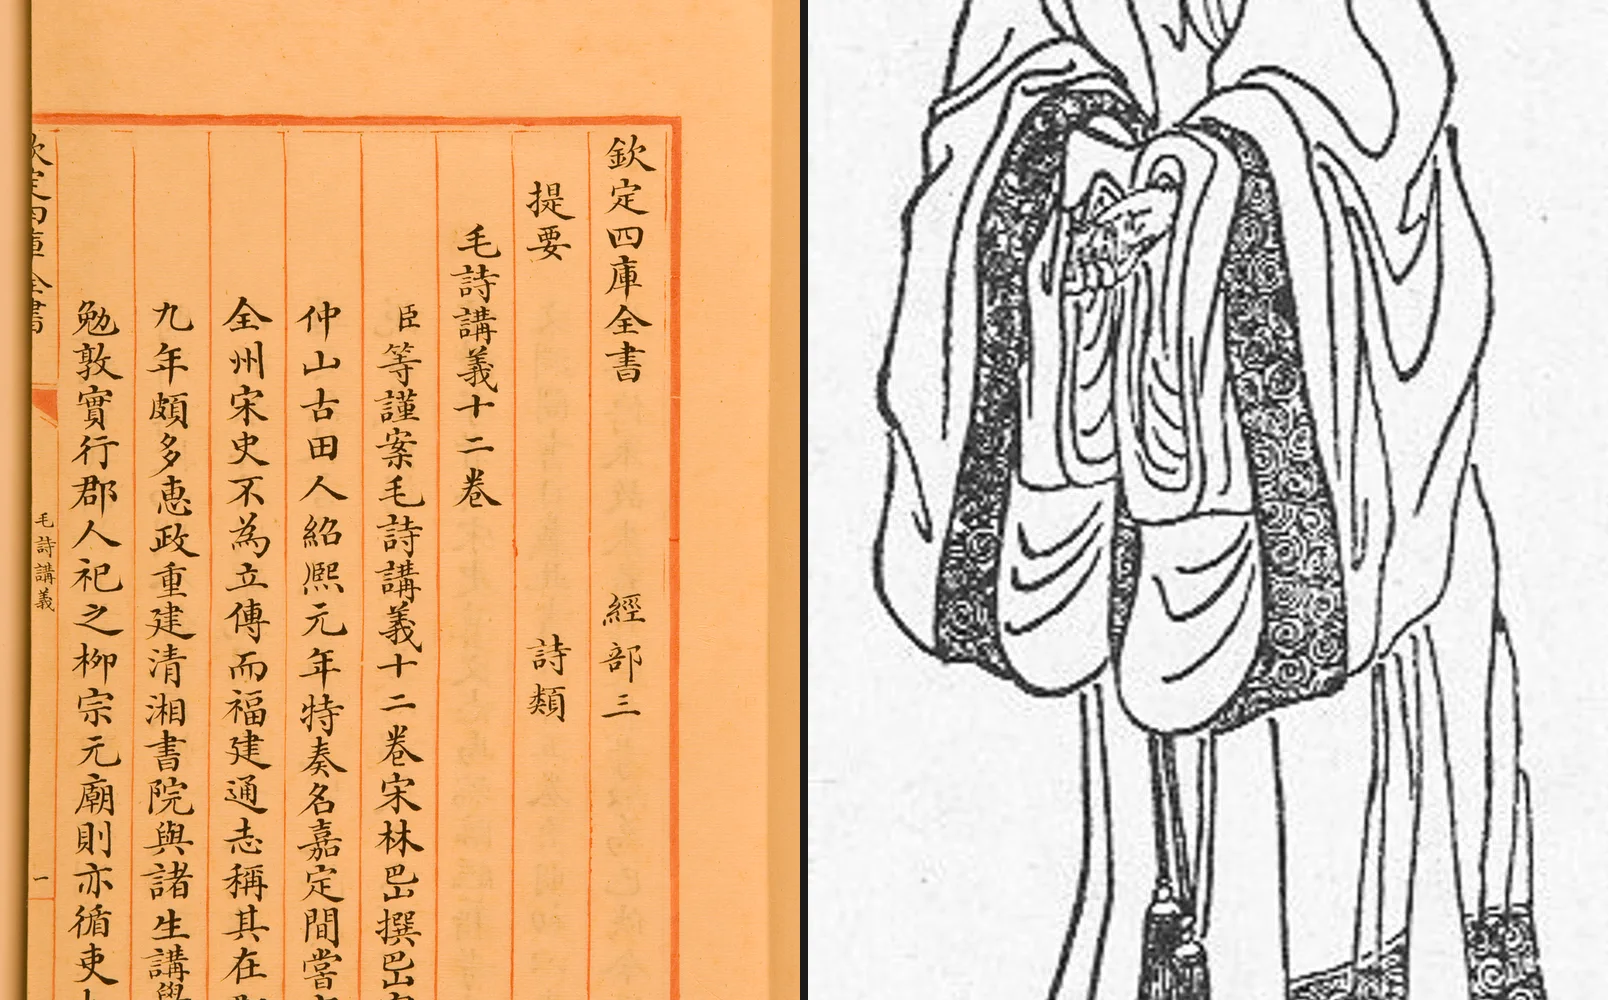 欽定四庫全書　經部三
提要　詩類
毛詩講義十二卷
臣等謹案毛詩講義十二卷宋林岊撰岊字
仲山古田人紹熙元年特奏名嘉定間嘗
全州宋史不為立傳而福建通志稱其在
九年頗多惠政重建清湘書院與諸生講學
勉敦實行郡人祀之柳宗元廟則亦循吏
欽定四庫全書
毛詩講義
一